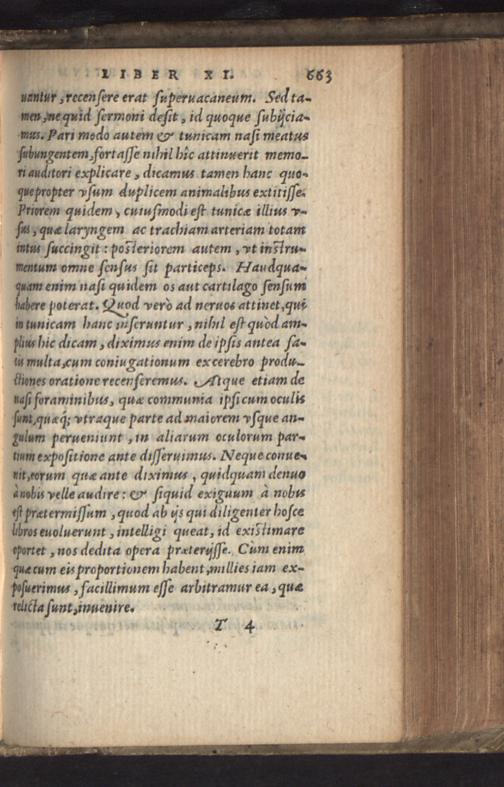 LIBER XI. 663
uantur, recensere erat superuacaneum. Sed ta-
men, ne quid sermoni desit, id quoque subijcia-
mus. Pari modo autem & tunicam nasi meatus
subungentem, fortasse nihil hîc attinuerit memo-
ri auditori explicare, dicamus tamen hanc quo-
que propter vsum duplicem animalibus extitisse.
Priorem quidem, cuiusmodi est tunicæ illius v-
sus, quæ laryngem ac trachiam arteriam totam
intus succingit: posteriorem autem, vt instru-
mentum omne sensus sit particeps. Haudqua-
quam enim nasi quidem os aut cartilago sensum
habere poterat. Quod verò ad neruos attinet, qui
in tunicam hanc inseruntur, nihil est quòd am-
plius hic dicam, diximus enim de ipsis antea sa-
tis multa, cum coniugationum ex cerebro produ-
ctiones oratione recenseremus. Atque etiam de
nasi foraminibus, quæ communia ipsi cum oculis
sunt, quæq; vtraque parte ad maiorem vsque an-
gulum perueniunt, in aliarum oculorum par-
tium expositione ante disseruimus. Neque conue-
nit, eorum quæ ante diximus, quidquam denuo
à nobis velle audire: & siquid exiguum à nobis
est prætermissum, quod ab ijs qui diligenter hosce
libros euoluerunt, intelligi queat, id existimare
oportet, nos dedita opera præterijsse. Cùm enim
quæ cum eis proportionem habent, millies iam ex-
posuerimus, facillimum esse arbitramur ea, quæ
relicta sunt, inuenire.
T 4